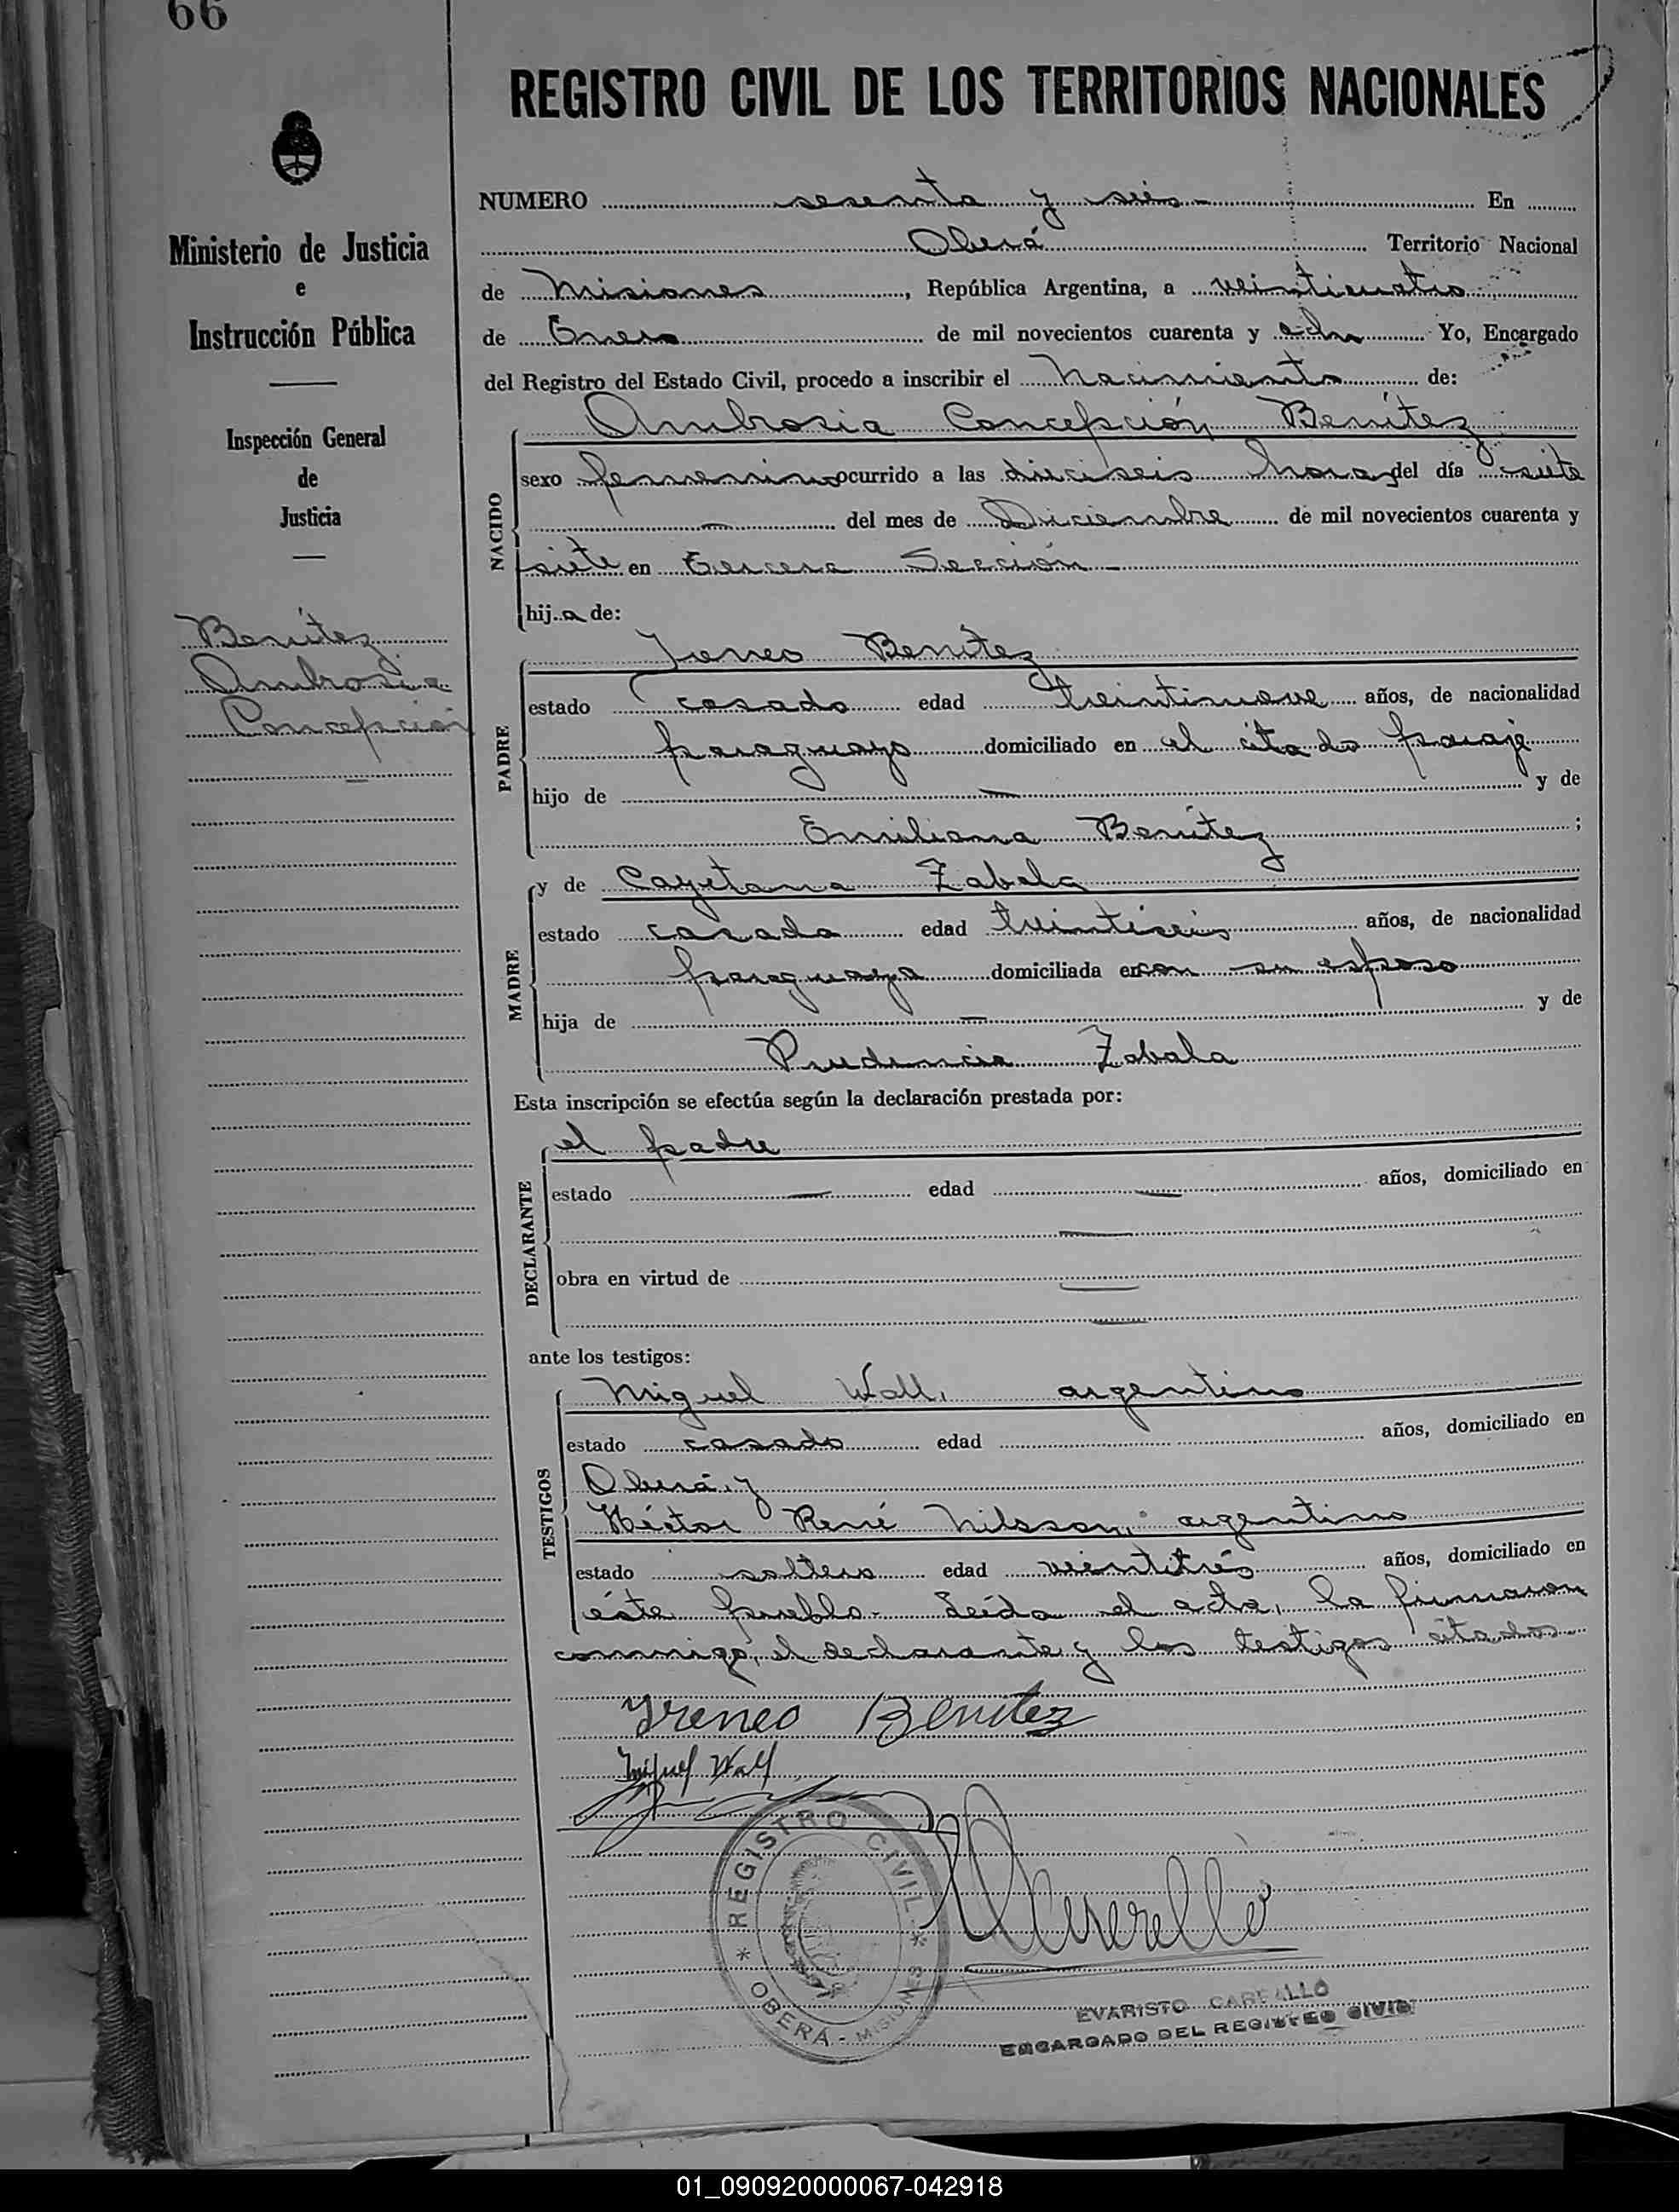 66
REGISTRO CIVIL DE LOS TERRITORIOS NACIONALES
Ministerio de Justicia
e
Instrucción Pública
Inspección General
de
Justicia
Benítez
Ambrosia
Concepción
NUMERO sesenta y seis En
Oberá Territorio Nacional
de Misiones, República Argentina, a veinticuatro
de Enero de mil novecientos cuarenta y ocho Yo, Encargado
del Registro del Estado Civil, procedo a inscribir el Nacimiento de:
NACIDO
Ambrosia Concepción Benítez
sexo femenino ocurrido a las dieciseis horas del día siete
del mes de Diciembre de mil novecientos cuarenta y
siete en Tercera Sección
hija de:
PADRE
Ireneo Benítez
estado casado edad treintinueve años, de nacionalidad
paraguayo domiciliado en el citado paraje
hijo de y de
Emiliana Benítez ;
MADRE
y de Cayetana Zabala
estado casada edad treintiseis años, de nacionalidad
paraguaya domiciliada en con su esposo
hija de y de
Prudencia Zabala
Esta inscripción se efectúa según la declaración prestada por:
DECLARANTE
el padre
estado edad años, domiciliado en
obra en virtud de
ante los testigos:
TESTIGOS
Miguel Wall, argentino
estado casado edad años, domiciliado en
Oberá, y
Héctor René Nilsson, argentino
estado soltero edad veintitrés años, domiciliado en
éste pueblo. Leída el acta, la firmaron
conmigo, el declarante y los testigos citados
Yreneo Benitez
Miguel Wall
REGISTRO CIVIL
* OBERÁ - MISIONES *
EVARISTO CARBALLO
ENCARGADO DEL REGISTRO CIVIL
01_090920000067-042918